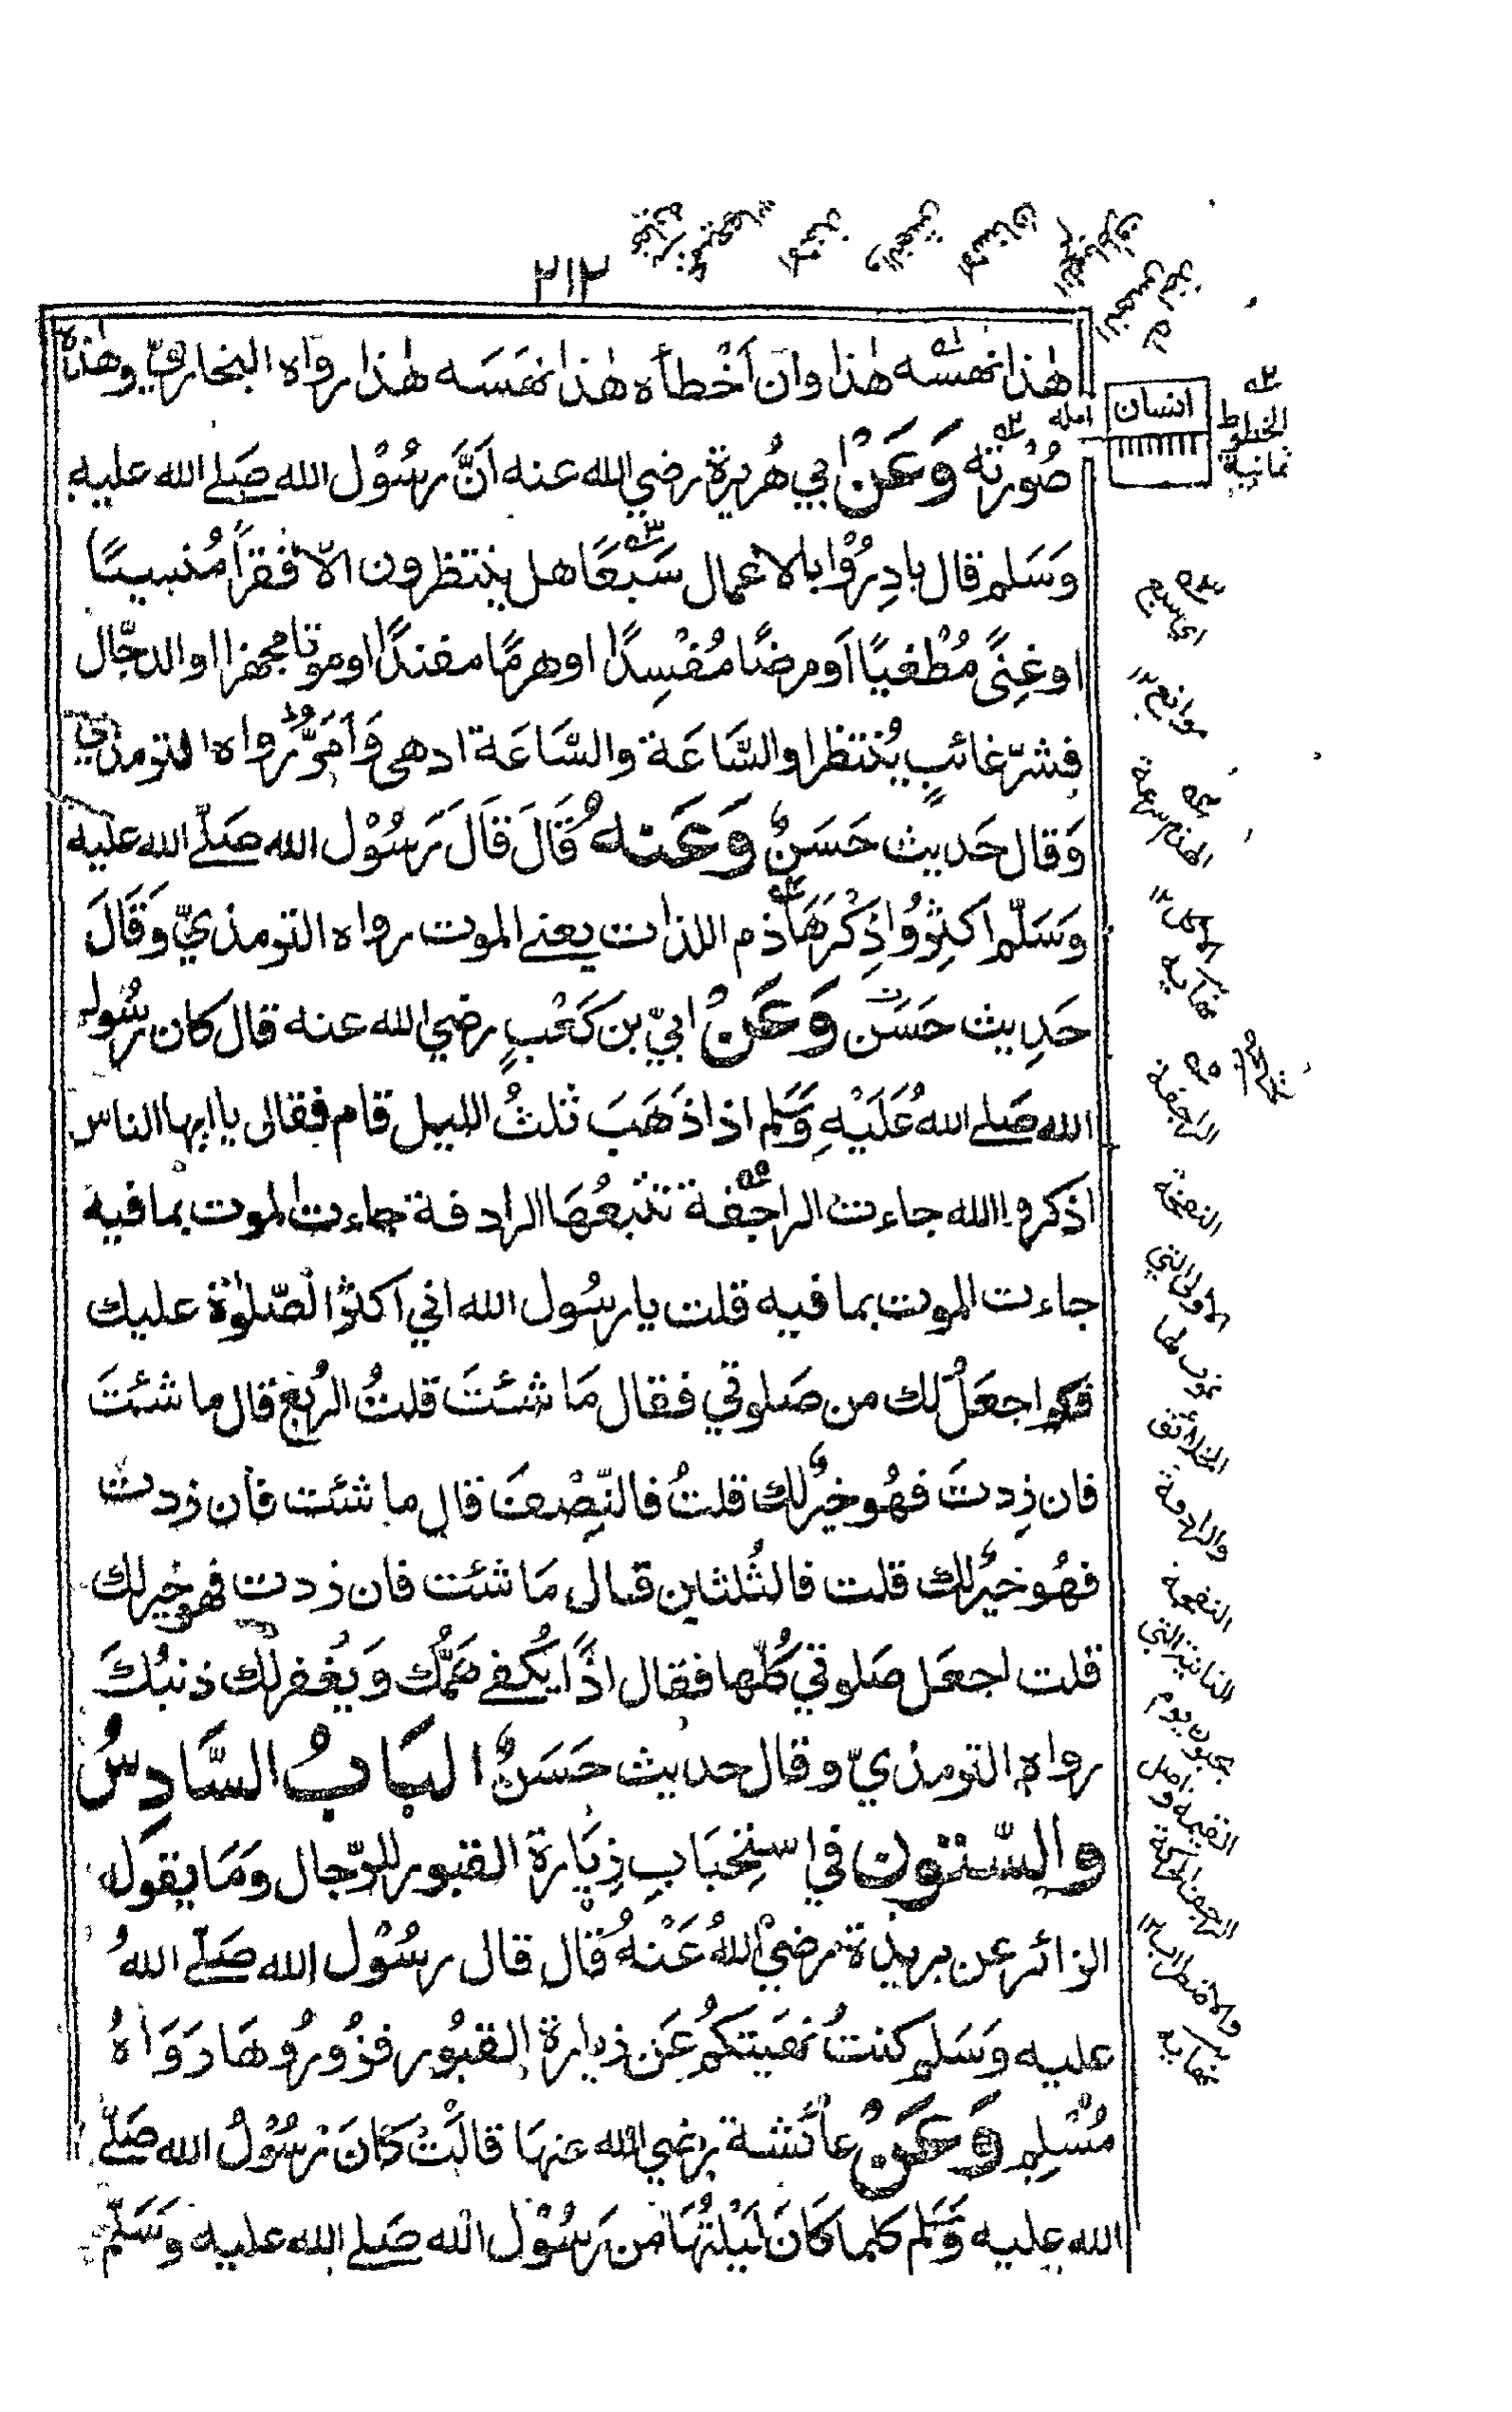 ٢١٢
هٰذا نهسّه هٰذا وان اَخْطأه هٰذا نهَسَه هٰذا رواه البخاريّ وهٰذه
صُوْرته وَعَنْ ابي هُريرة رضي الله عنه انَّ رسُوْل الله صَلے الله عليه
وَسَلم قال بادِرُوْا بالاعمال سَبْعًا هل ينتظرون الّا فقراً مُنسيًا
او غِنًى مُطْغيًا اَو مرضًا مُفْسِدًا اوهرمًا مفندًا او موتا مجهزا او الدجّال
فشرّ غائبٍ يُنتظر او السَّاعَة والسَّاعَة ادهى وَاَمَرُّ رواه الترمذي
وَقال حَديث حَسَنٌ وَعَنهُ قَالَ قَالَ رَسُوْل الله صَلّے الله عليه
وَسَلّم اكثِرُوْا ذِكْرَ هَاذم اللذات يعنے الموت رواه الترمذيّ وَقَالَ
حَدِيث حَسَن وَعَنْ ابيّ بن كَعْبٍ رضي الله عنه قال كان رسُول
الله صَلے اللهُ عَلَيْهِ وَسَلم اذا ذَهَبَ ثلثُ الليل قام فقال يا ايها الناس
اذكروا الله جاءت الراجفة تتبعُهَا الرادفة جاءت الموت بما فيه
جاءت الموت بما فيه قلت يا رسُول الله اني اكثر الصّلوٰة عليك
فكم اجعَلُ لك من صَلوتي فقال مَا شئتَ قلتُ الرُبع قال ما شئتَ
فان زِدتَ فهُو خيرٌ لك قلتُ فالنِّصْفَ قال ما شئت فان زدت
فهُو خيرٌ لك قلت فالثُلثين قال مَا شئت فان زدت فهو خير لك
قلت اجعَل صَلوتي كُلّها فقال اذًا يُكفے هَمُّك وَيُغفر لك ذنبُكَ
رواه الترمذيّ وقال حديث حَسَنٌ البَابُ السَّادِسُ
والسّتون في استِحبَابِ زِيَارة القبور للرّجال وَمَا يقوله
الزائر عن بريدة رضيْ اللهُ عَنْهُ قَال قال رسُوْل الله صَلّے اللهُ
عليه وَسَلم كنتُ نهَيتكُم عَن زيارة القبُور فزُورُوهَا رَوَاهُ
مُسْلِم وَعَنْ عائشة رضي الله عنها قالَتْ كَانَ رسُوْلُ الله صَلّے
الله عليه وَسَلم كلما كَانَ لَيْلتُهَا من رَسُوْل الله صَلے الله عليه وَسَلّم
انسان
امله
الخطوط
ثمانية
اي سبع
موانع
الهذم سرعة
الراجفة
النفخة
الاولى التي
يموت لها
الخلائق
والرادفة
النفخة
الثانية التي
يحيون يوم
القيمة واصل
الرجف الحركة
والاضطراب
نهايه